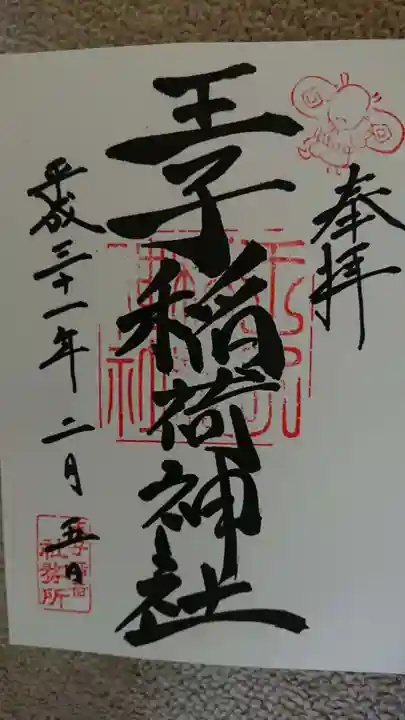 奉拝
王子稲荷神社
平成三十一年二月五日
社務所